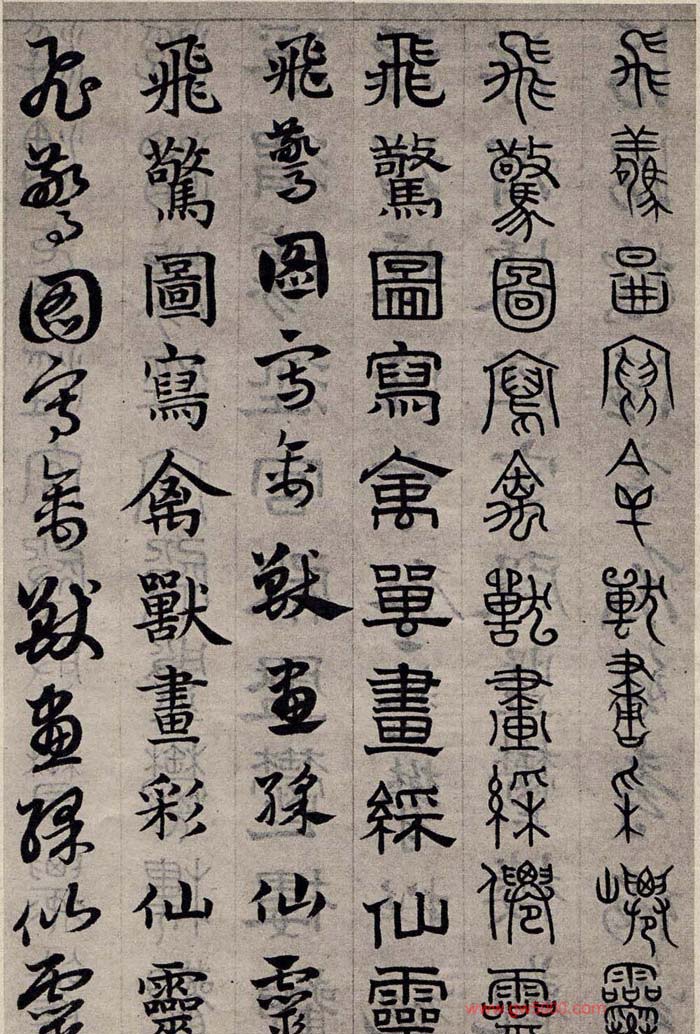 飛驚圖寫禽獸畫采僊靈
飛驚圖寫禽獸畫綵僊靈
飛驚圖寫禽嘼畫綵仙靈
飛驚圖寫禽獸畫綵仙靈
飛驚圖寫禽獸畫彩仙靈
飛驚圖寫禽獸畫綵仙靈